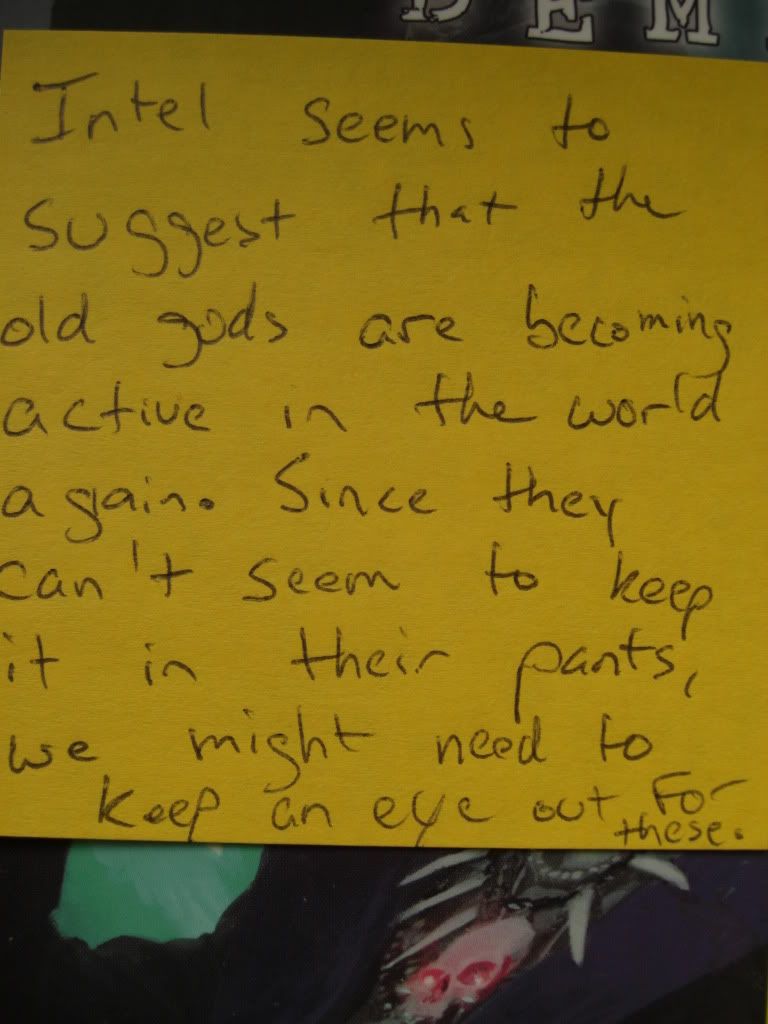 DEM
Intel seems to
suggest that the
old gods are becoming
active in the world
again. Since they
can't seem to keep
it in their pants,
we might need to
keep an eye out for
these.